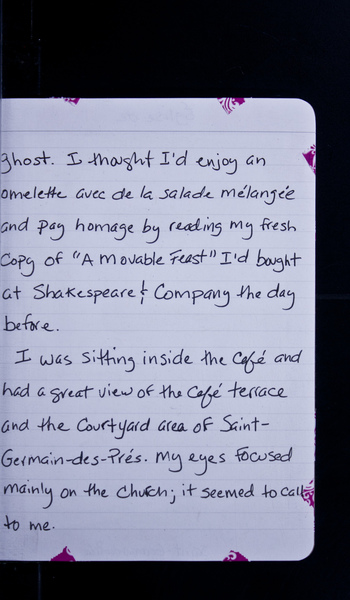 ghost. I thought I'd enjoy an
omelette avec de la salade mélangée
and pay homage by reading my fresh
copy of "A Movable Feast" I'd bought
at Shakespeare & Company the day
before.
I was sitting inside the Café and
had a great view of the Café terrace
and the Courtyard area of Saint-
Germain-des-Prés. My eyes focused
mainly on the Church; it seemed to call
to me.